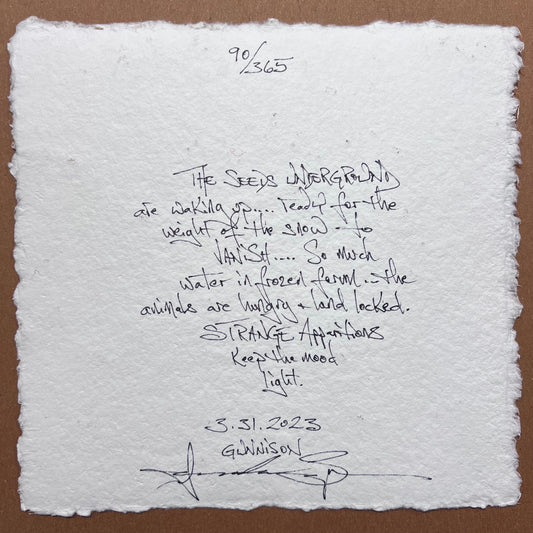 90/365
THE SEEDS UNDERGROUND
are waking up.... ready for the
weight of the snow - to
VANISH.... So much
water in frozen form... the
animals are hungry + land locked.
STRANGE Apparitions
Keep the mood
light.
3.31.2023
GUNNISON